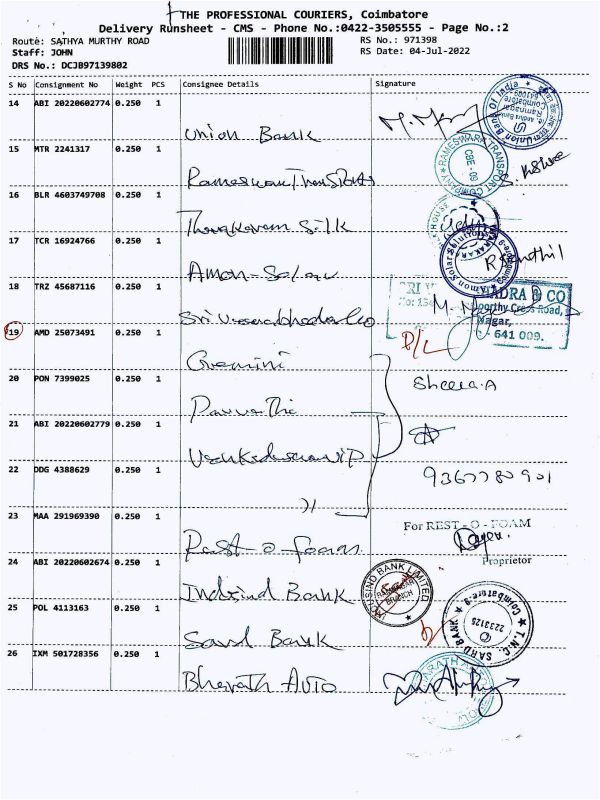 THE PROFESSIONAL COURIERS, Coimbatore
Delivery Runsheet - CMS - Phone No.:0422-3505555 - Page No.:2
Route: SATHYA MURTHY ROAD RS No.: 971398
Staff: JOHN RS Date: 04-Jul-2022
DRS No.: DCJB97139802
S No Consignment No Weight PCS Consignee Details Signature
14 ABI 20220602774 0.250 1 Union Bank
15 MTR 2241317 0.250 1 Rameswari Transports
16 BLR 4603749708 0.250 1 Silk
17 TCR 16924766 0.250 1 Amon-Solar R Senthil
18 TRZ 45687116 0.250 1
19 AMD 25073491 0.250 1 Gemini
20 PON 7399025 0.250 1 Parvathi Sheela.A
21 ABI 20220602779 0.250 1
22 DDG 4388629 0.250 1 )1 9367780901
23 MAA 291969390 0.250 1 Rest-o-foam For REST-O-FOAM
Proprietor
24 ABI 20220602674 0.250 1 Indusind Bank
25 POL 4113163 0.250 1 Sard Bank
26 IXM 501728356 0.250 1 Bharath Auto
Union Bank Of India
RAMESWARI TRANSPORT COMPANY
CBE - 09
Amon Solar Solutions
DRA & CO
Nagar,
- 641 009.
INDUSIND BANK LIMITED
BRANCH
T.N.C. SARD BANK
Coimbatore-9
2233125